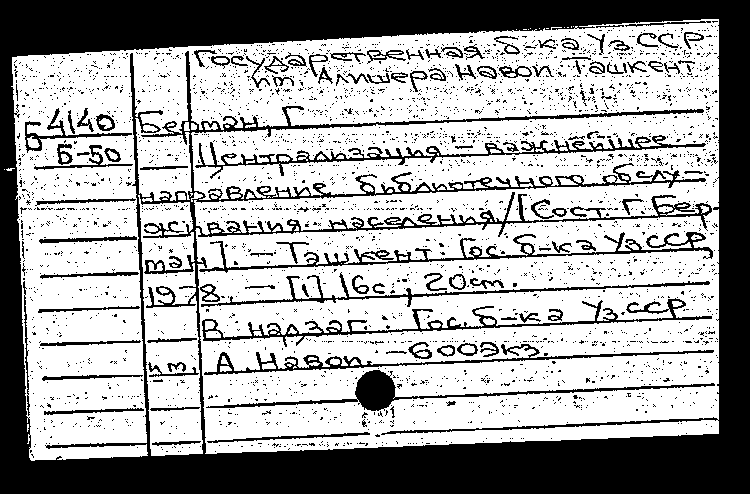 Государственная б-ка УзССР
им. Алишера Навои. Ташкент
Б 4140
Б-50
Берман, Г
Централизация – важнейшее
направление библиотечного обслу-
живания населения / [Сост. Г. Бер-
ман]. – Ташкент: Гос. б-ка УзССР,
1978. – [1], 16с.; 20см.
В надзаг.: Гос. б-ка Уз.ССР
им. А. Навои. – 600экз.